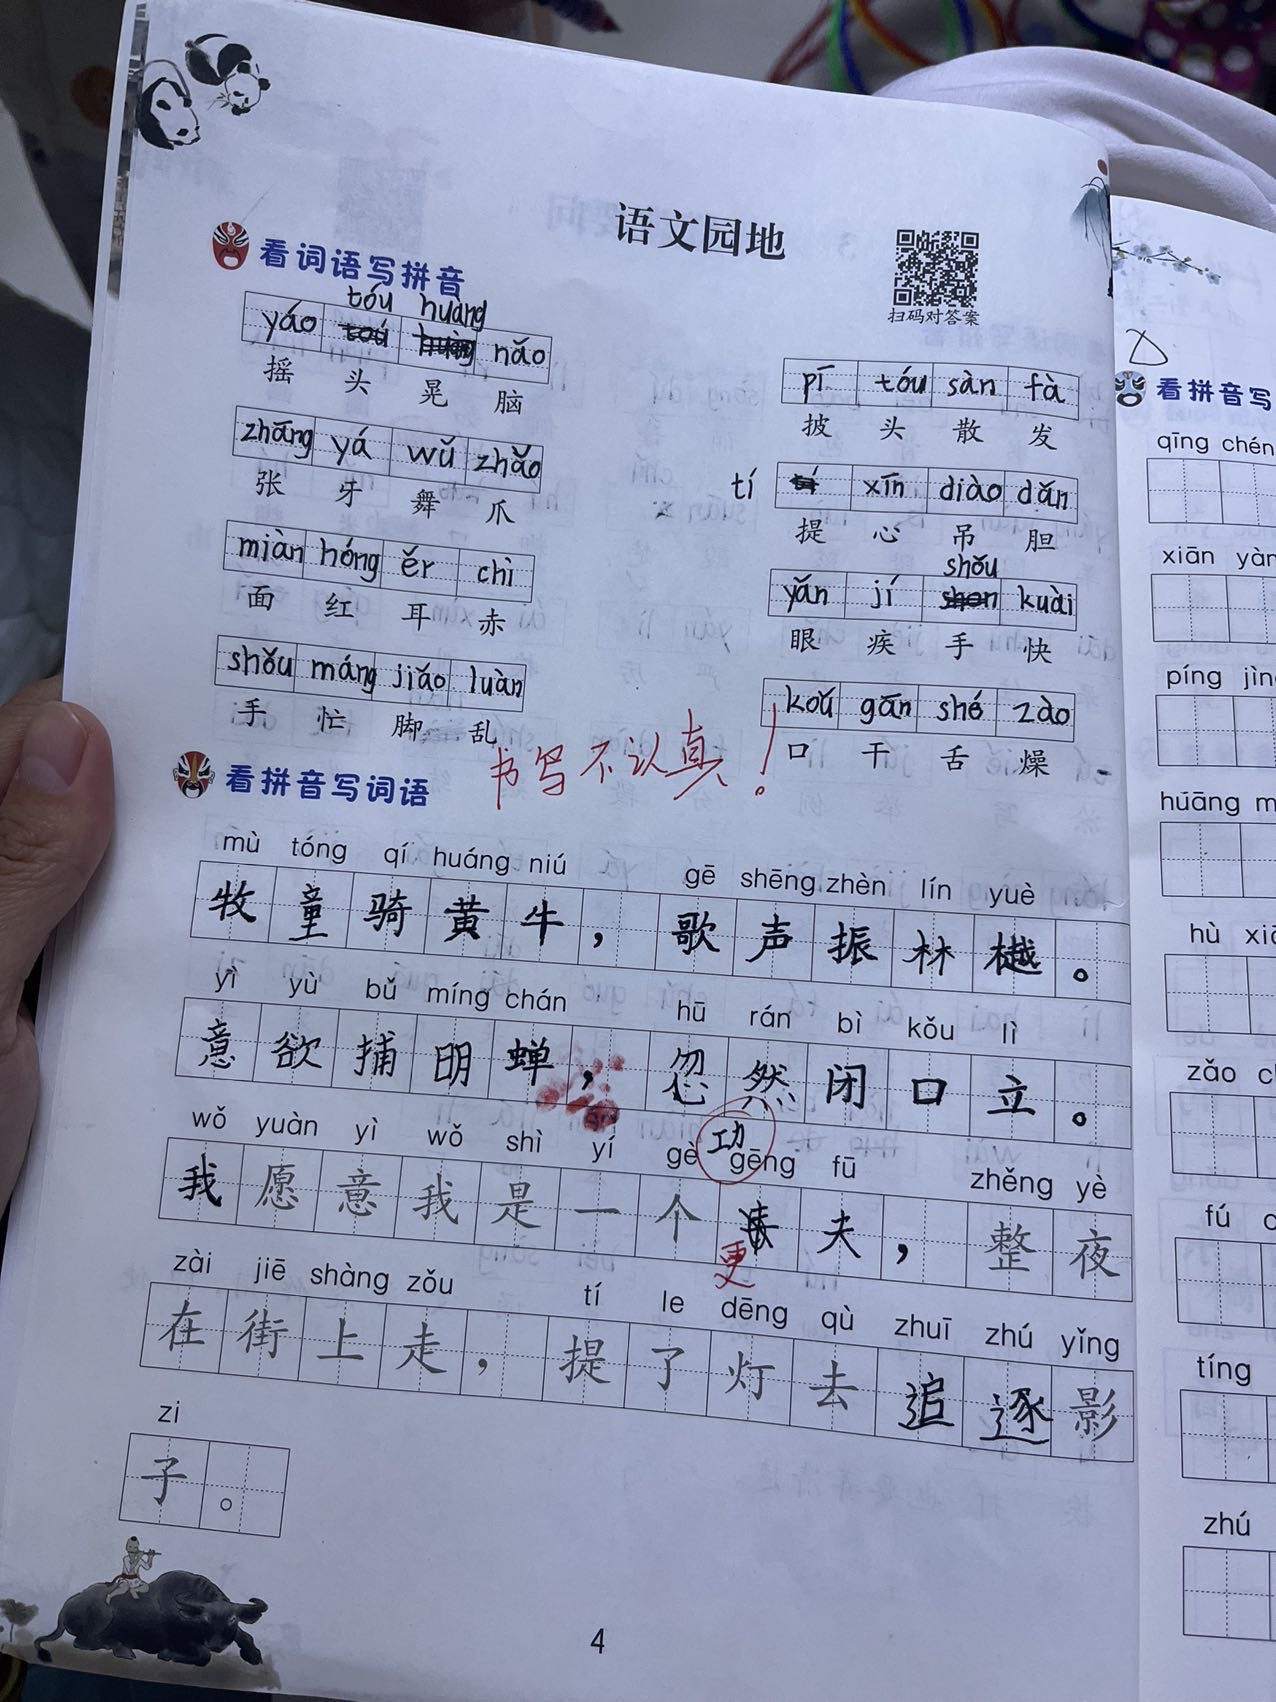 语文园地
扫码对答案
看词语写拼音
tóu huàng
yáo nǎo
摇 头 晃 脑
pī tóu sàn fà
披 头 散 发
zhāng yá wǔ zhǎo
张 牙 舞 爪
tí xīn diào dǎn
提 心 吊 胆
miàn hóng ěr chì
面 红 耳 赤
shǒu
yǎn jí kuài
眼 疾 手 快
shǒu máng jiǎo luàn
手 忙 脚 乱
koǔ gān shé zào
口 干 舌 燥
书写不认真！
看拼音写词语
mù tóng qí huáng niú gē shēng zhèn lín yuè
牧童骑黄牛，歌声振林樾。
yì yù bǔ míng chán hū rán bì kǒu lì
意欲捕明蝉，忽然闭口立。
功
wǒ yuàn yì wǒ shì yí gè gēng fū zhěng yè
我愿意我是一个夫，整夜
更
zài jiē shàng zǒu tí le dēng qù zhuī zhú yǐng
在街上走，提了灯去追逐影
zi
子。
4
看拼音写
qīng chén
xiān yàn
píng jìn
huāng m
hù xiā
zǎo c
fú c
tíng
zhú